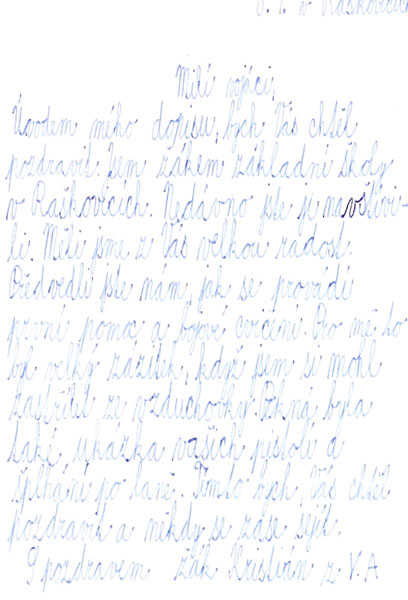 8. 1. v Raškovicích
Milí vojáci,
Úvodem mého dopisu, bych Vás chtěl
pozdravit. Jsem žákem základní školy
v Raškovicích. Nedávno jste ji navštívi-
li. Měli jsme z Vás velkou radost.
Předvedli jste nám, jak se provádí
první pomoc a bojové cvičení. Pro mě to
byl velký zážitek, když jsem si mohl
zastřílet ze vzduchovky. Pěkná byla
také, ukázka vašich pistolí a
šplhání po laně. Tímto bych, Vás chtěl
pozdravit a někdy se zase sejít.
S pozdravem žák Kristián z V. A